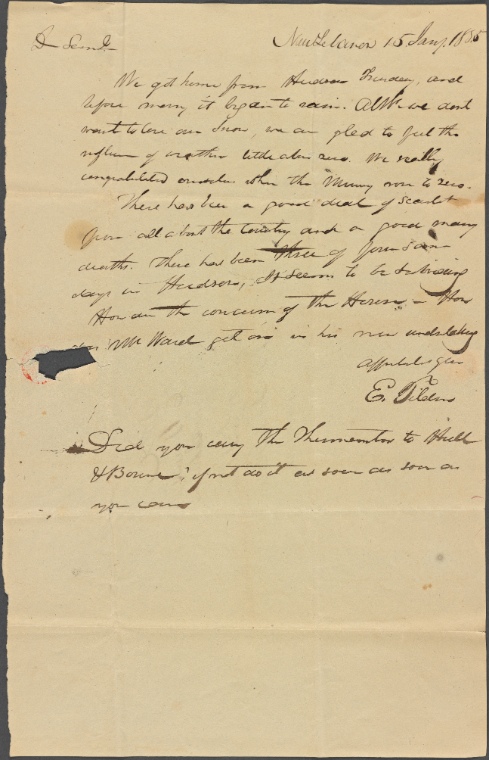 New Lebanon 15 Jany. 1835
D Saml.
We got home from Hudson Thursday, and
before morning it began to rain. Altho we dont
want to lose our Snow, we are glad to feel the
influence of weather little above zero. We really
congratulated ourselves when the Mercury rose to zero.
There has been a good deal of Scarlet
from all about the Country and a good many
deaths. There has been three of four
days in Hudson, It seems to be subsiding
How are the concerns of the House - How
does Mr Ward get on in his new undertaking
Affectionately yours
E. Tilden
Did you carry the Thermometer to Hull
& Bowne, if not do it as soon as soon as
you can